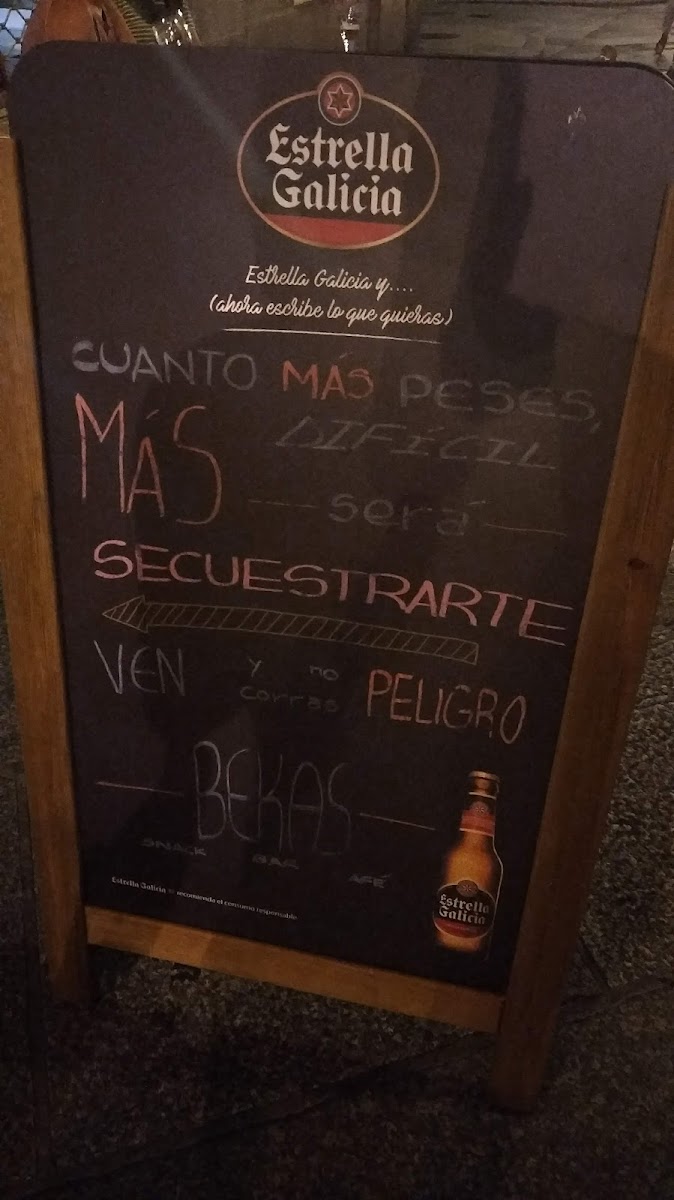 Estrella
Galicia
Estrella Galicia y....
(ahora escribe lo que quieras)
CUANTO MÁS PESES,
MÁS DIFÍCIL
será
SECUESTRARTE
VEN y no corras PELIGRO
BEKAS
SNACK BAR AFÉ
Estrella Galicia recomienda el consumo responsable
Estrella
Galicia